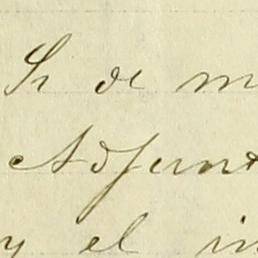 Sr de m
Adjunt
y el in